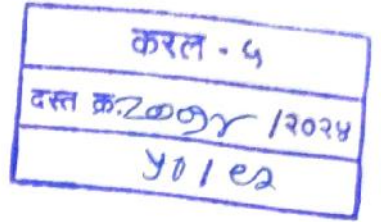 करल - ५
दस्त क्र. २००१४ /२०२४
५० / ९२